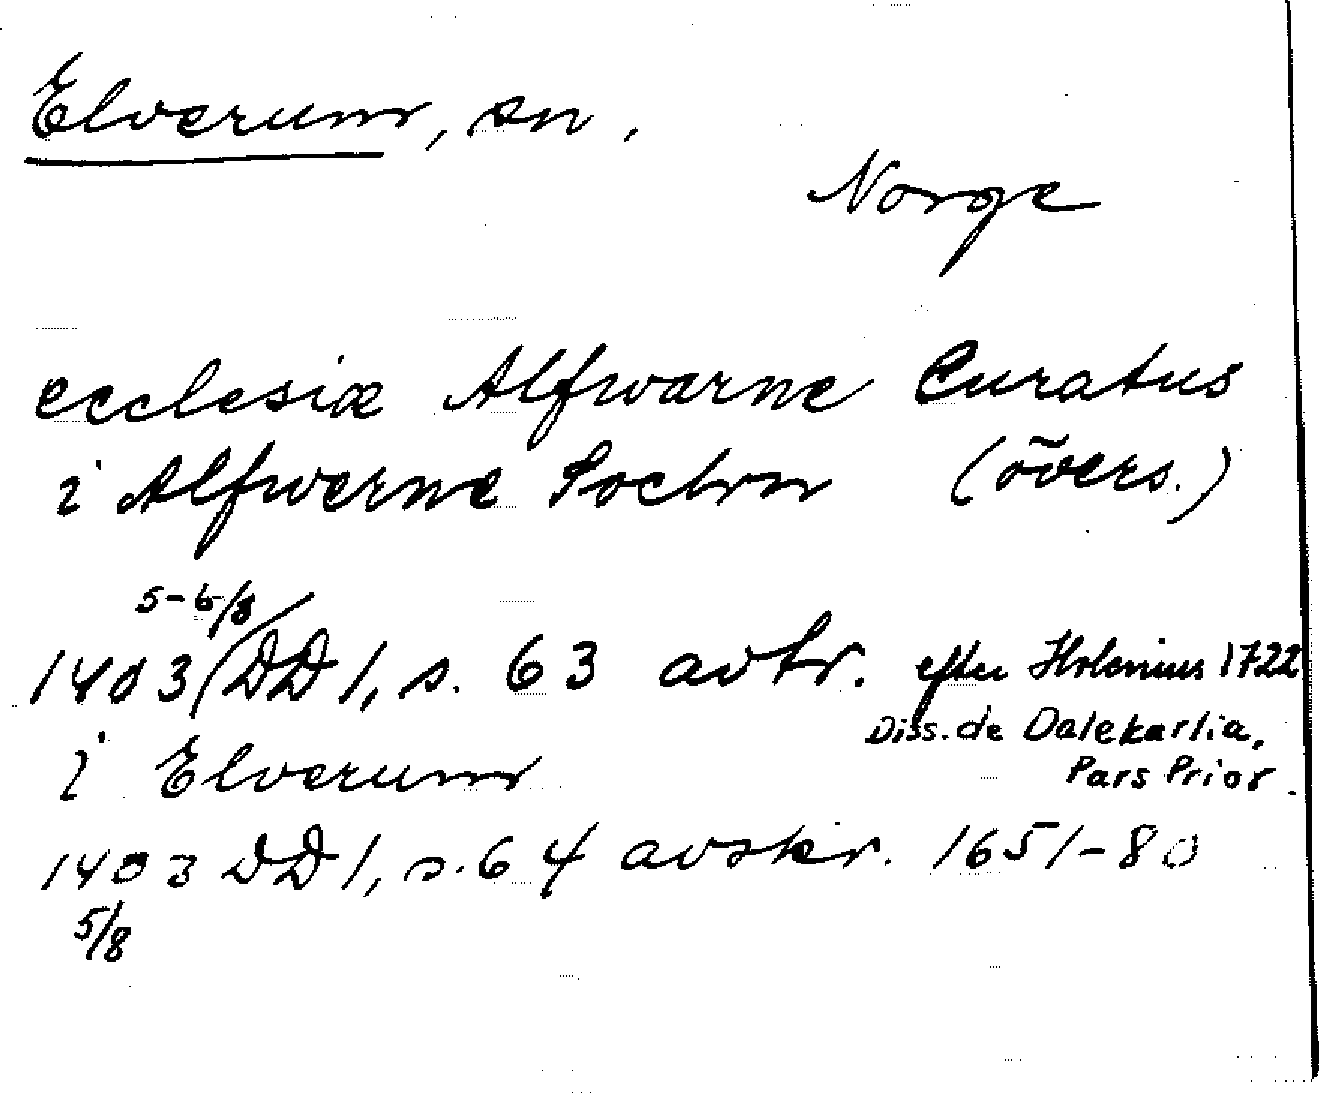 Elverum, sn.
Norge
ecclesiæ Alfwarne Curatus
i Alfwerne Sochn (övers.)
5-6/8
1403 DD 1, s. 63 avtr. efter Holenius 1722
Diss. de Dalekarlia,
Pars Prior.
i Elverum
1403 DD 1, s. 64 avskr. 1651-80
5/8